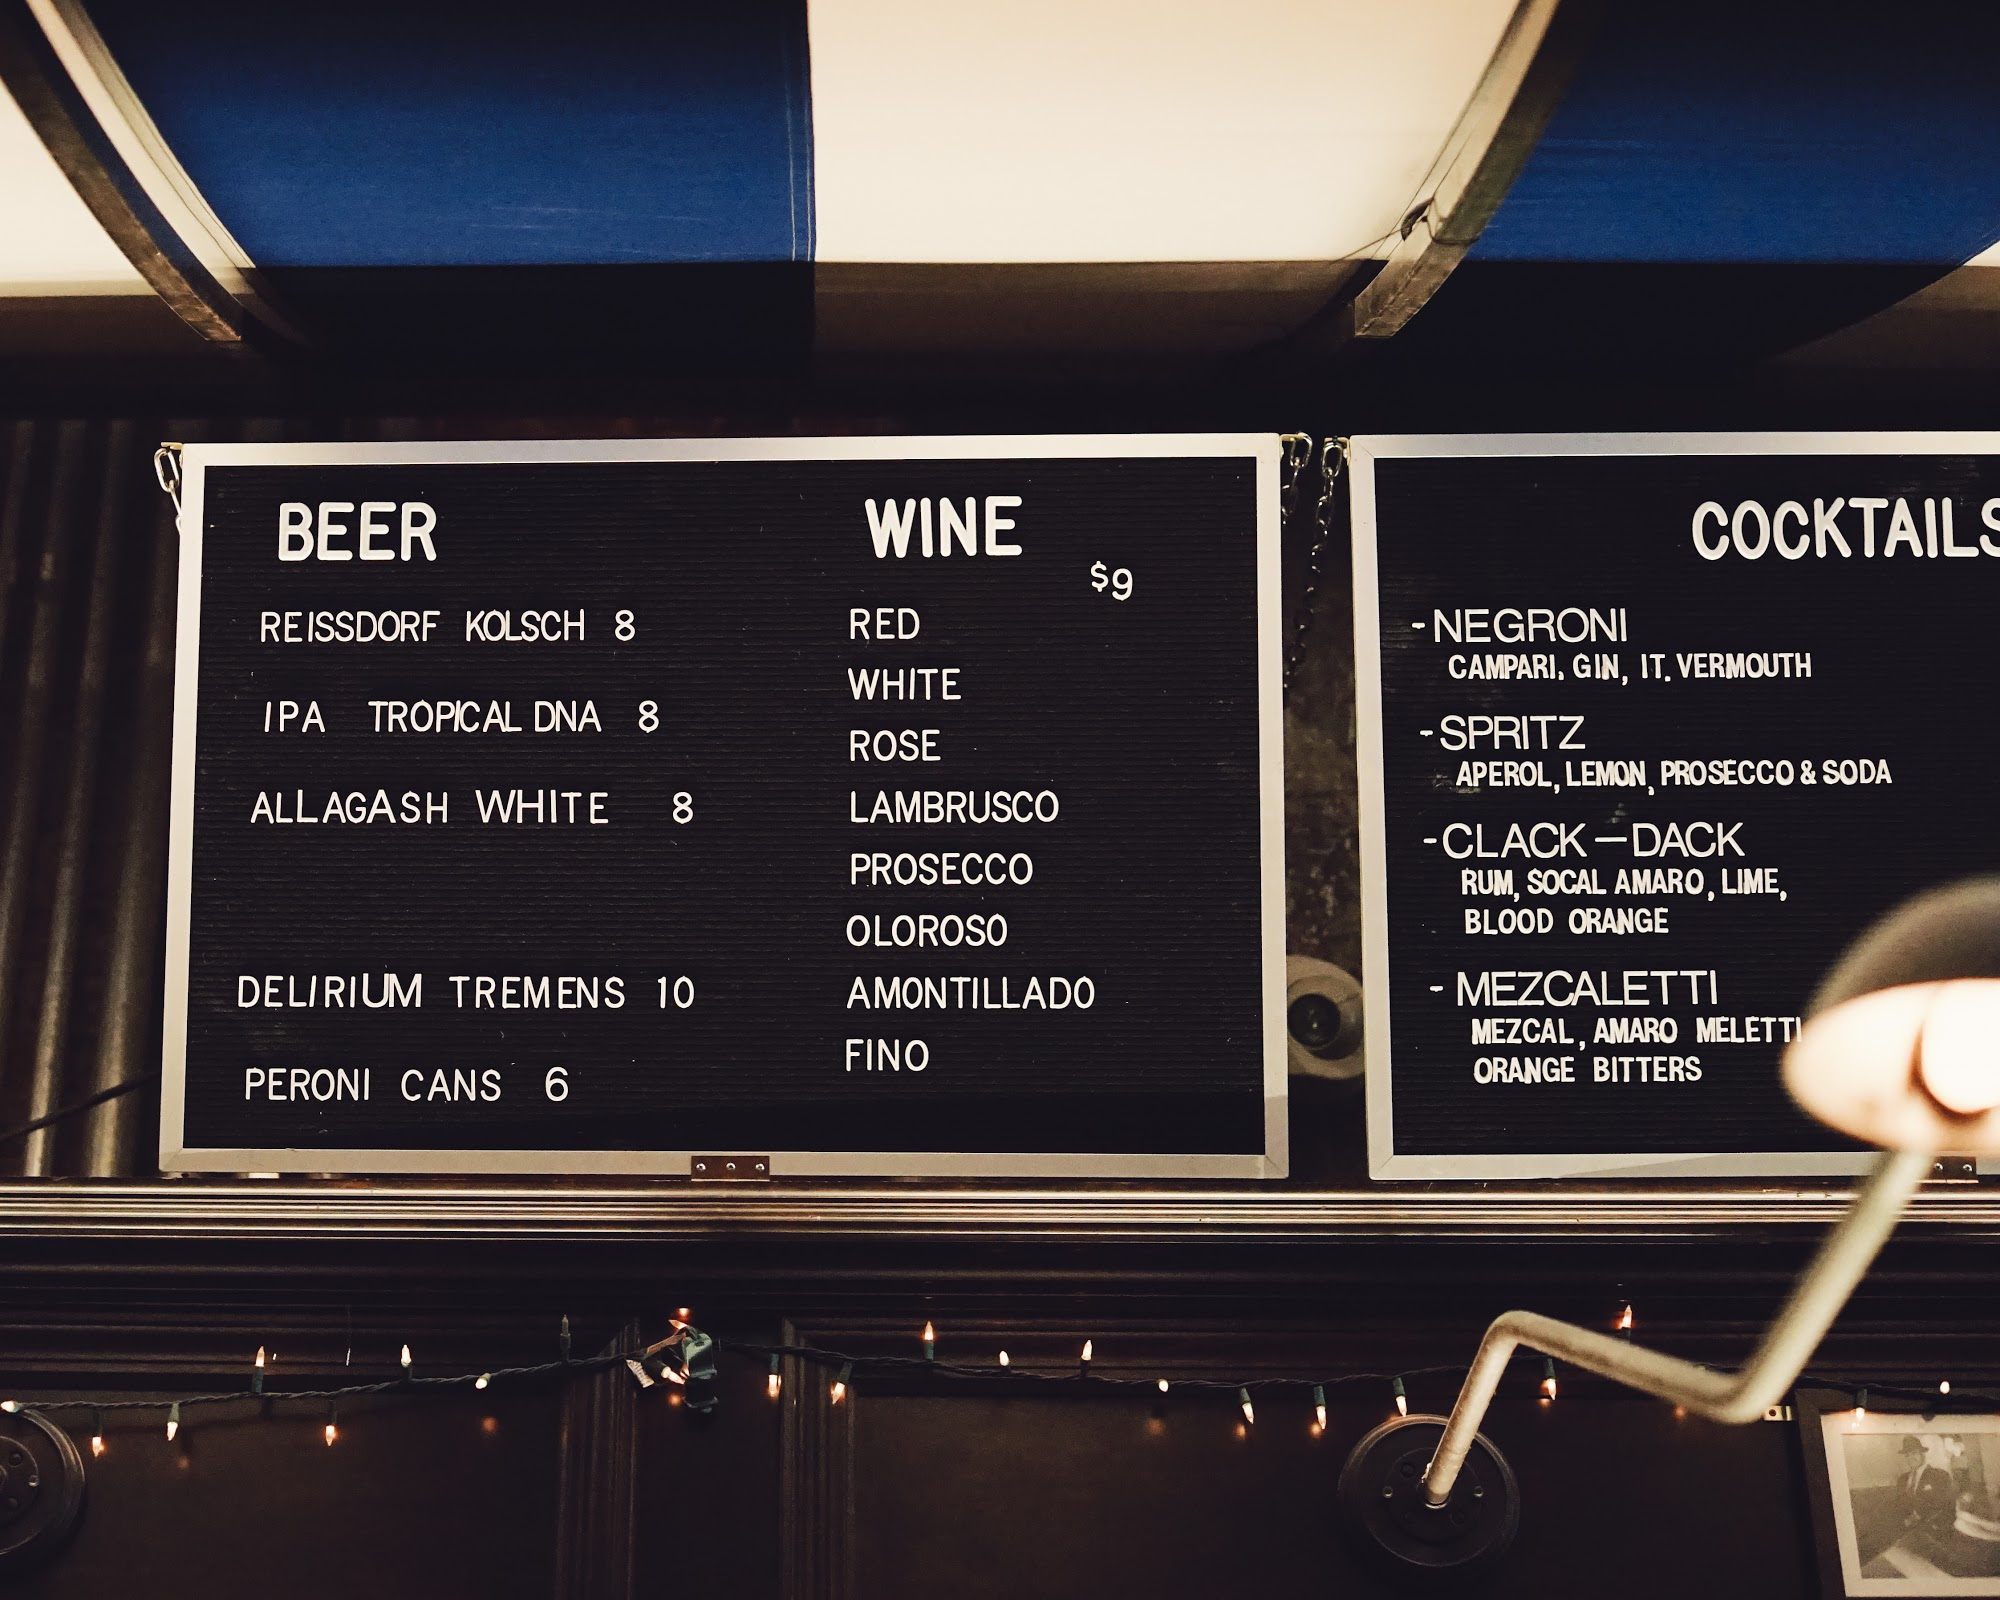 BEER
REISSDORF KOLSCH 8
IPA TROPICAL DNA 8
ALLAGASH WHITE 8
DELIRIUM TREMENS 10
PERONI CANS 6
WINE
$9
RED
WHITE
ROSE
LAMBRUSCO
PROSECCO
OLOROSO
AMONTILLADO
FINO
COCKTAILS
-NEGRONI
CAMPARI, GIN, IT. VERMOUTH
-SPRITZ
APEROL, LEMON, PROSECCO & SODA
-CLACK—DACK
RUM, SOCAL AMARO, LIME,
BLOOD ORANGE
- MEZCALETTI
MEZCAL, AMARO MELETTI
ORANGE BITTERS